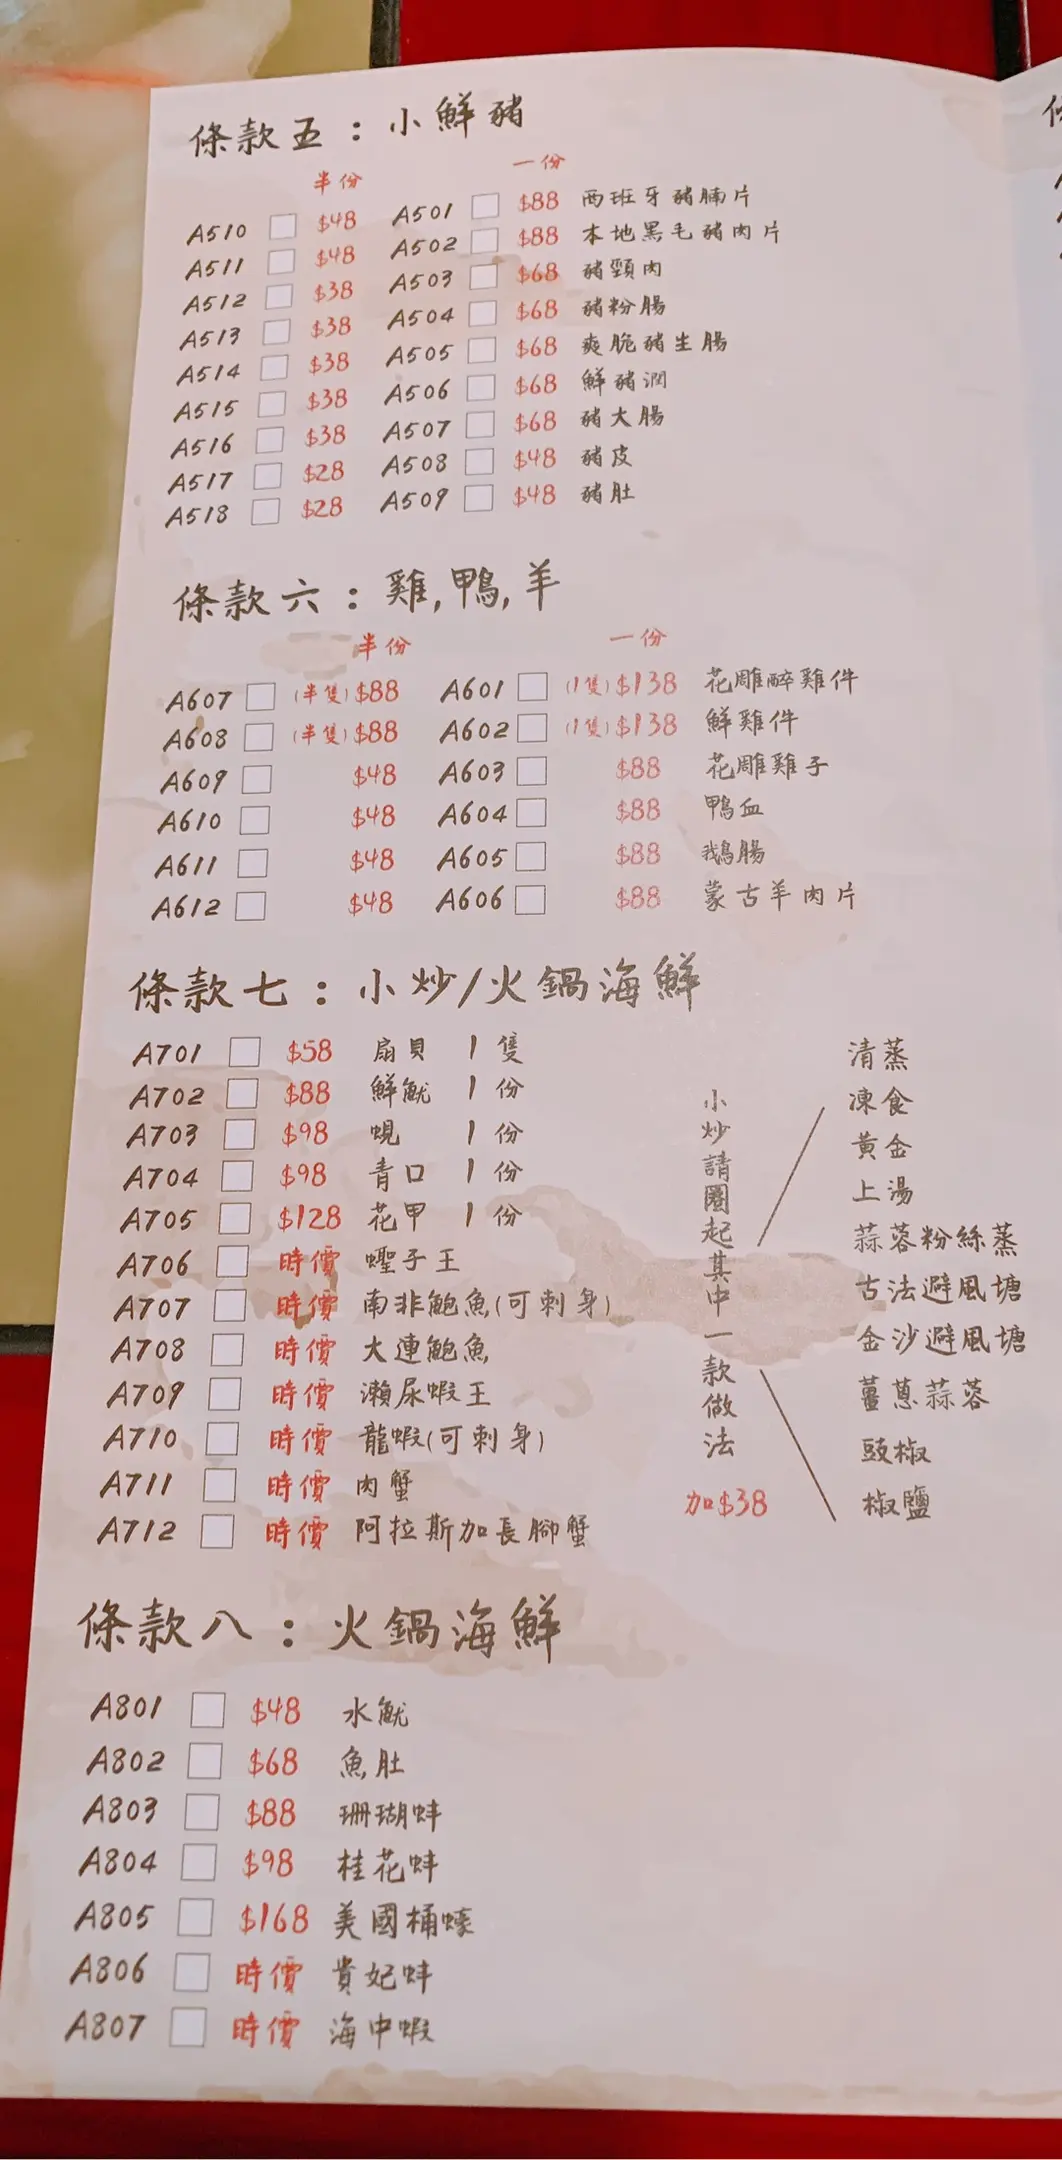 條款五：小鮮豬
半份 一份
A510 $48 A501 $88 西班牙豬腩片
A511 $48 A502 $88 本地黑毛豬肉片
A512 $38 A503 $68 豬頸肉
A513 $38 A504 $68 豬粉腸
A514 $38 A505 $68 爽脆豬生腸
A515 $38 A506 $68 鮮豬潤
A516 $38 A507 $68 豬大腸
A517 $28 A508 $48 豬皮
A518 $28 A509 $48 豬肚
條款六：雞,鴨,羊
半份 一份
A607 (半隻)$88 A601 (1隻)$138 花雕醉雞件
A608 (半隻)$88 A602 (1隻)$138 鮮雞件
A609 $48 A603 $88 花雕雞子
A610 $48 A604 $88 鴨血
A611 $48 A605 $88 鵝腸
A612 $48 A606 $88 蒙古羊肉片
條款七：小炒/火鍋海鮮
A701 $58 扇貝 1隻
A702 $88 鮮魷 1份
A703 $98 蜆 1份
A704 $98 青口 1份
A705 $128 花甲 1份
A706 時價 蟶子王
A707 時價 南非鮑魚(可刺身)
A708 時價 大連鮑魚
A709 時價 瀨尿蝦王
A710 時價 龍蝦(可刺身)
A711 時價 肉蟹
A712 時價 阿拉斯加長腳蟹
小炒請圈起其中一款做法
加$38
清蒸
凍食
黃金
上湯
蒜蓉粉絲蒸
古法避風塘
金沙避風塘
薑蔥蒜蓉
豉椒
椒鹽
條款八：火鍋海鮮
A801 $48 水魷
A802 $68 魚肚
A803 $88 珊瑚蚌
A804 $98 桂花蚌
A805 $168 美國桶蠔
A806 時價 貴妃蚌
A807 時價 海中蝦